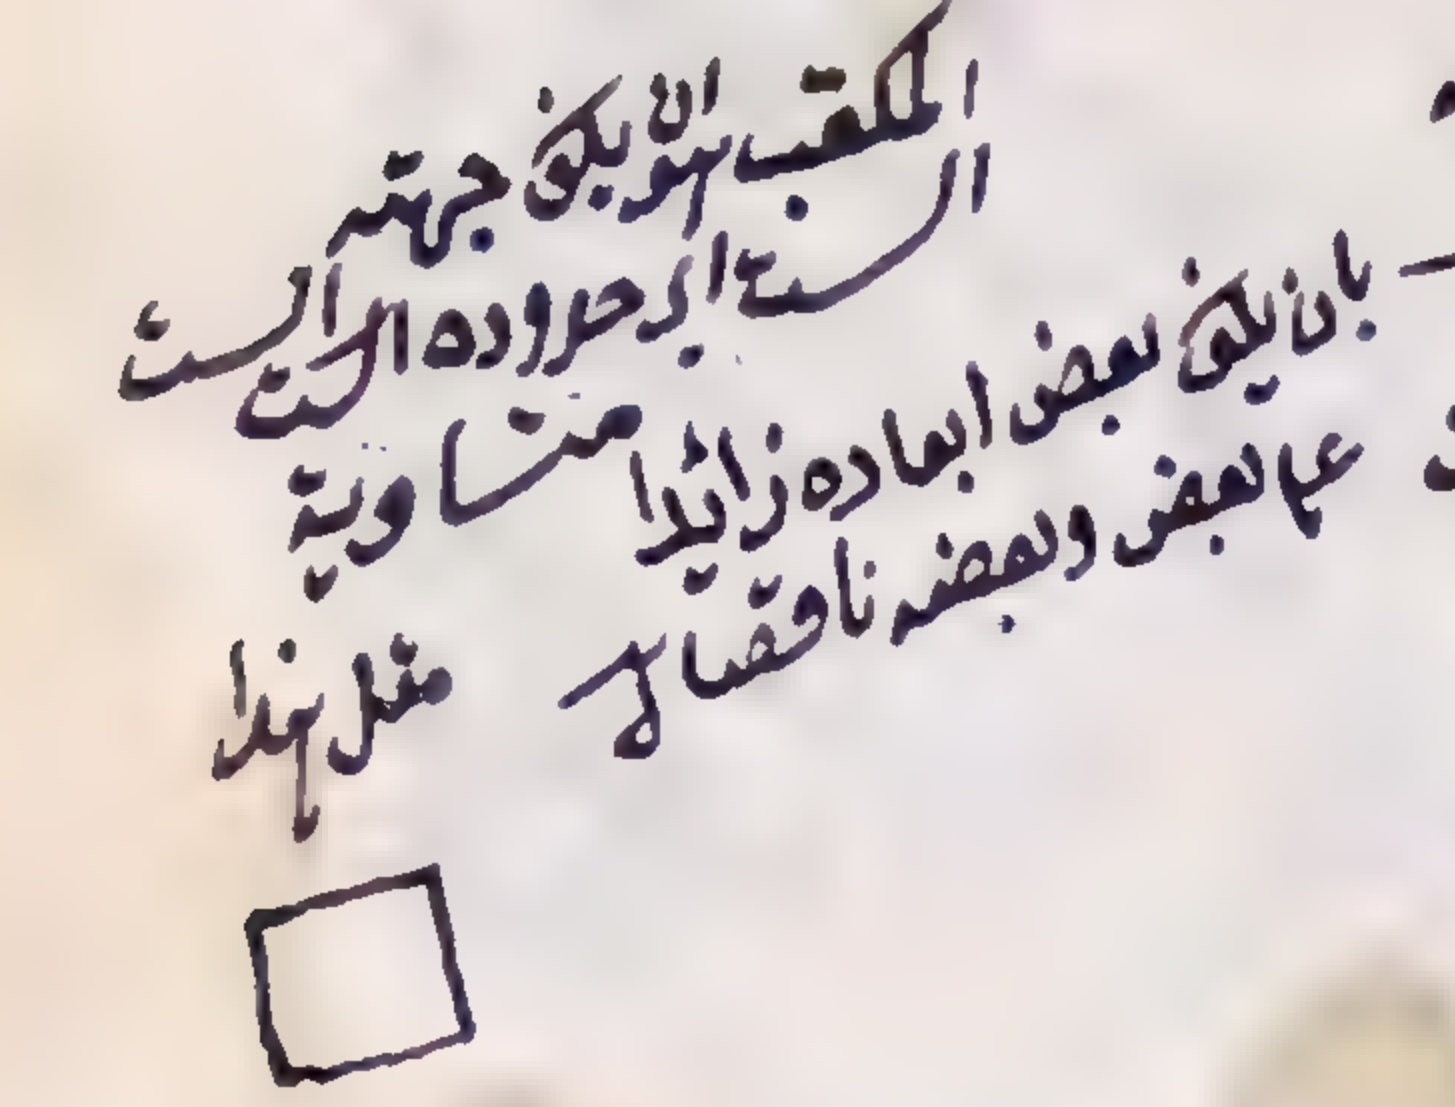 المكعب هو ان يكون جهته
الستة اي حدوده الست الست
متساوية
مثل هذا
بان يكون بعض ابعاده زائدا
على بعض وبعضه ناقصا